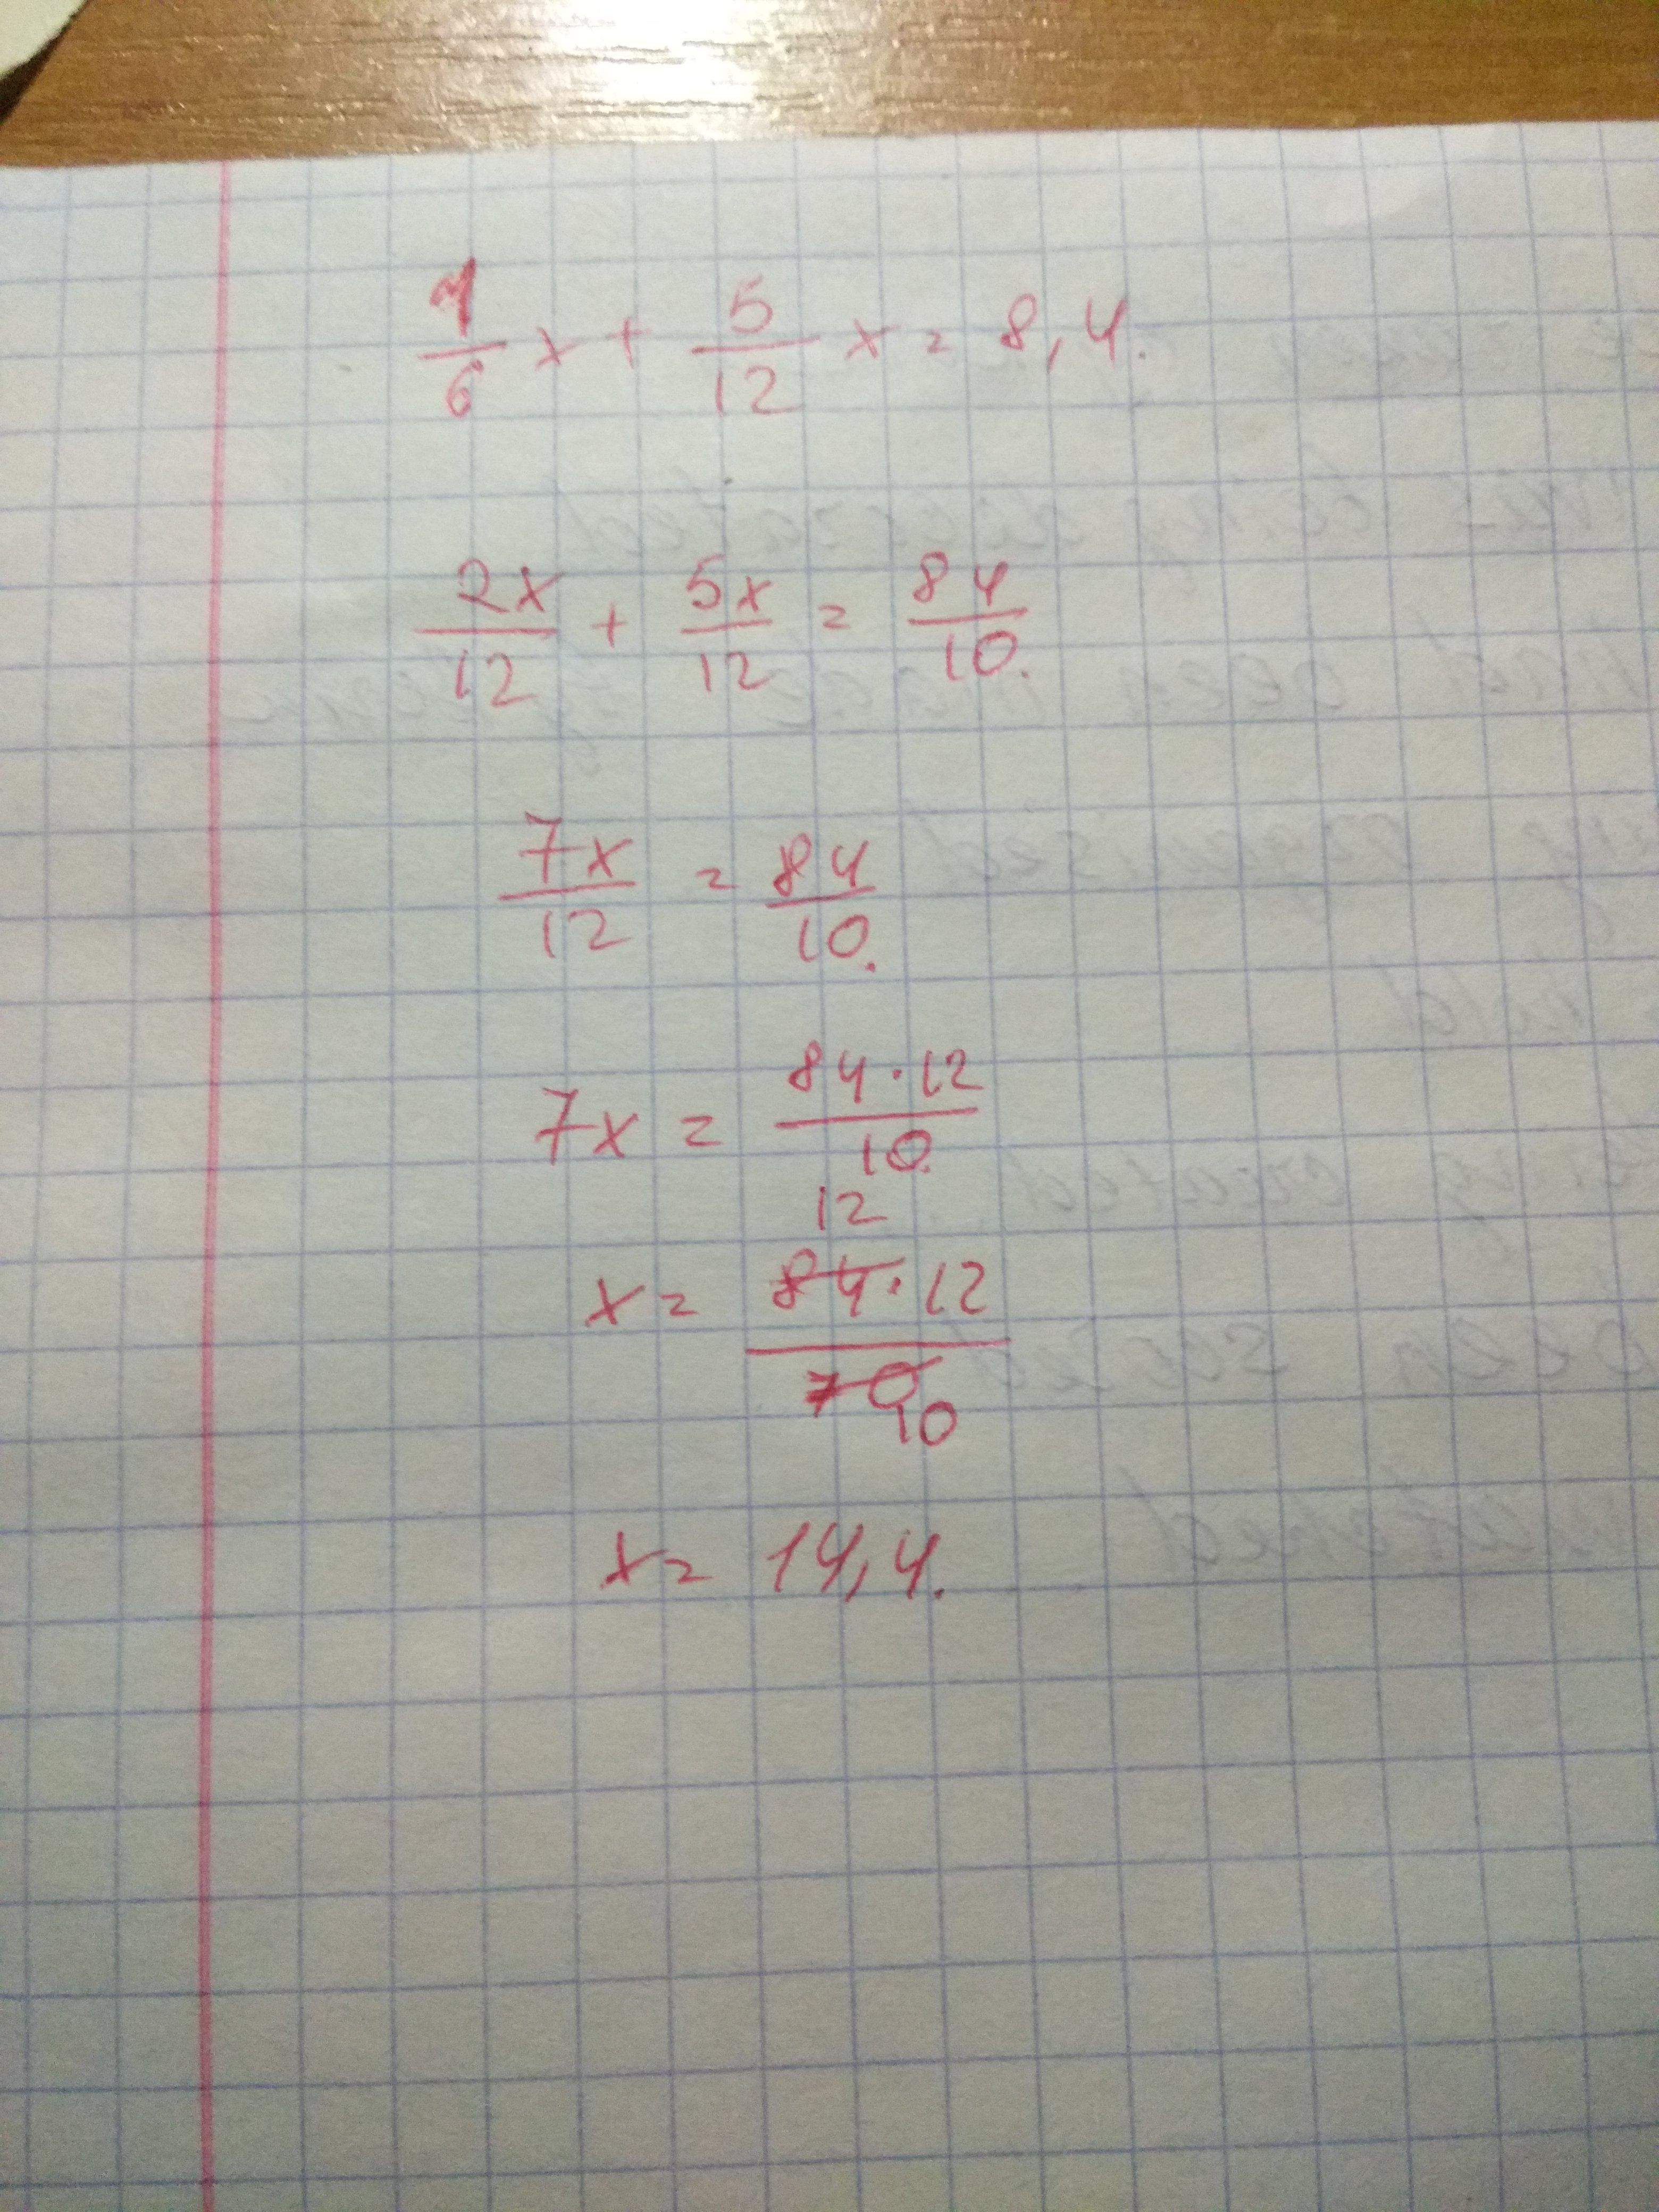 1/6 x + 5/12 x = 8,4.
2x/12 + 5x/12 = 84/10.
7x/12 = 84/10.
7x = 84·12/10.
12
x = 84·12/70
10
x = 14,4.